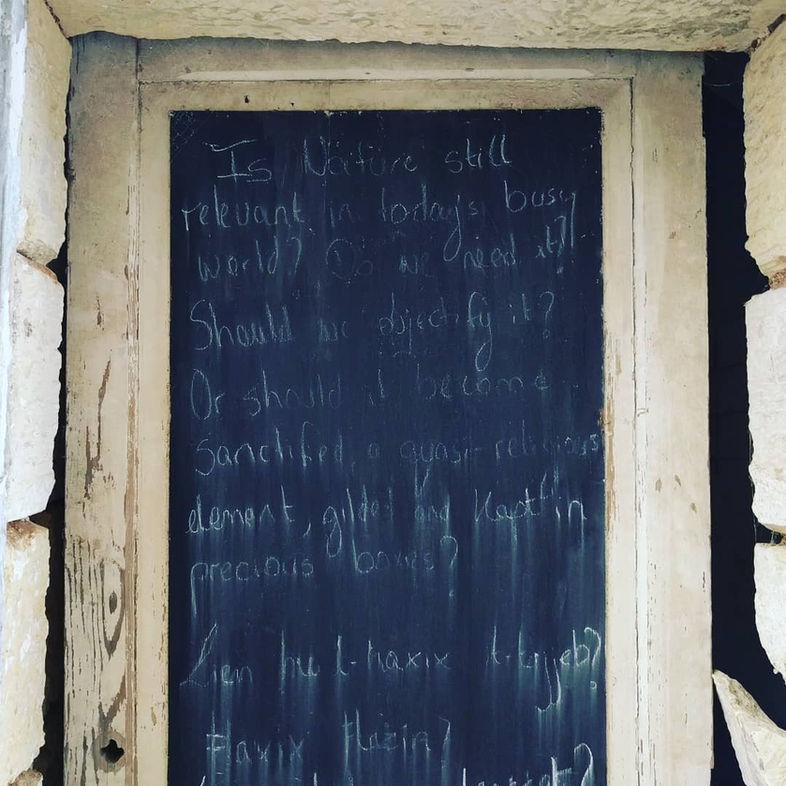 Is Nature still
relevant in today's busy
world? Do we need it?
Should we objectify it?
Or should it become
Sanctified, a quasi-religious
element, gilded and Kept in
precious boxes?
Liem hu l-ħaxix it-tajjeb?
Ħaxix Ħażin?